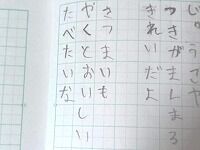 じゅうごや
つきがまんまる
きれいだよ
さつまいも
やくとおいしい
たべたいな